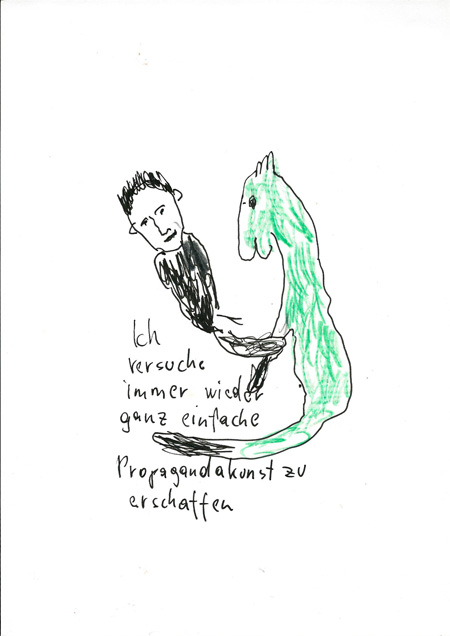 Ich
versuche
immer wieder
ganz einfache
Propagandakunst zu
erschaffen